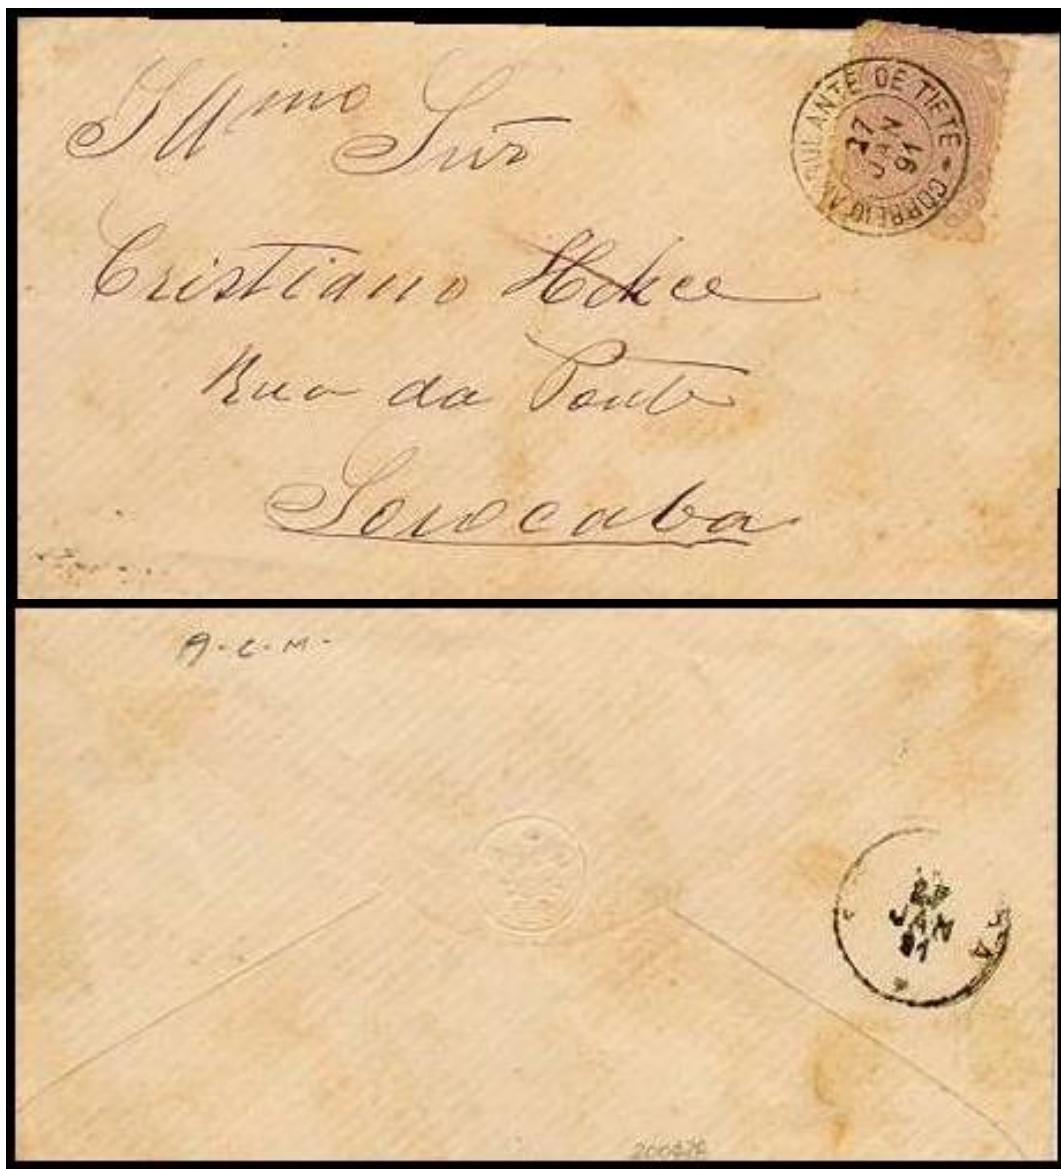 Illmo Snr
Cristiano
Rua da Ponte
Sorocaba
CORREIO AMBULANTE DE TIETE
27
JAN
91
A-C-M-
JAN
91